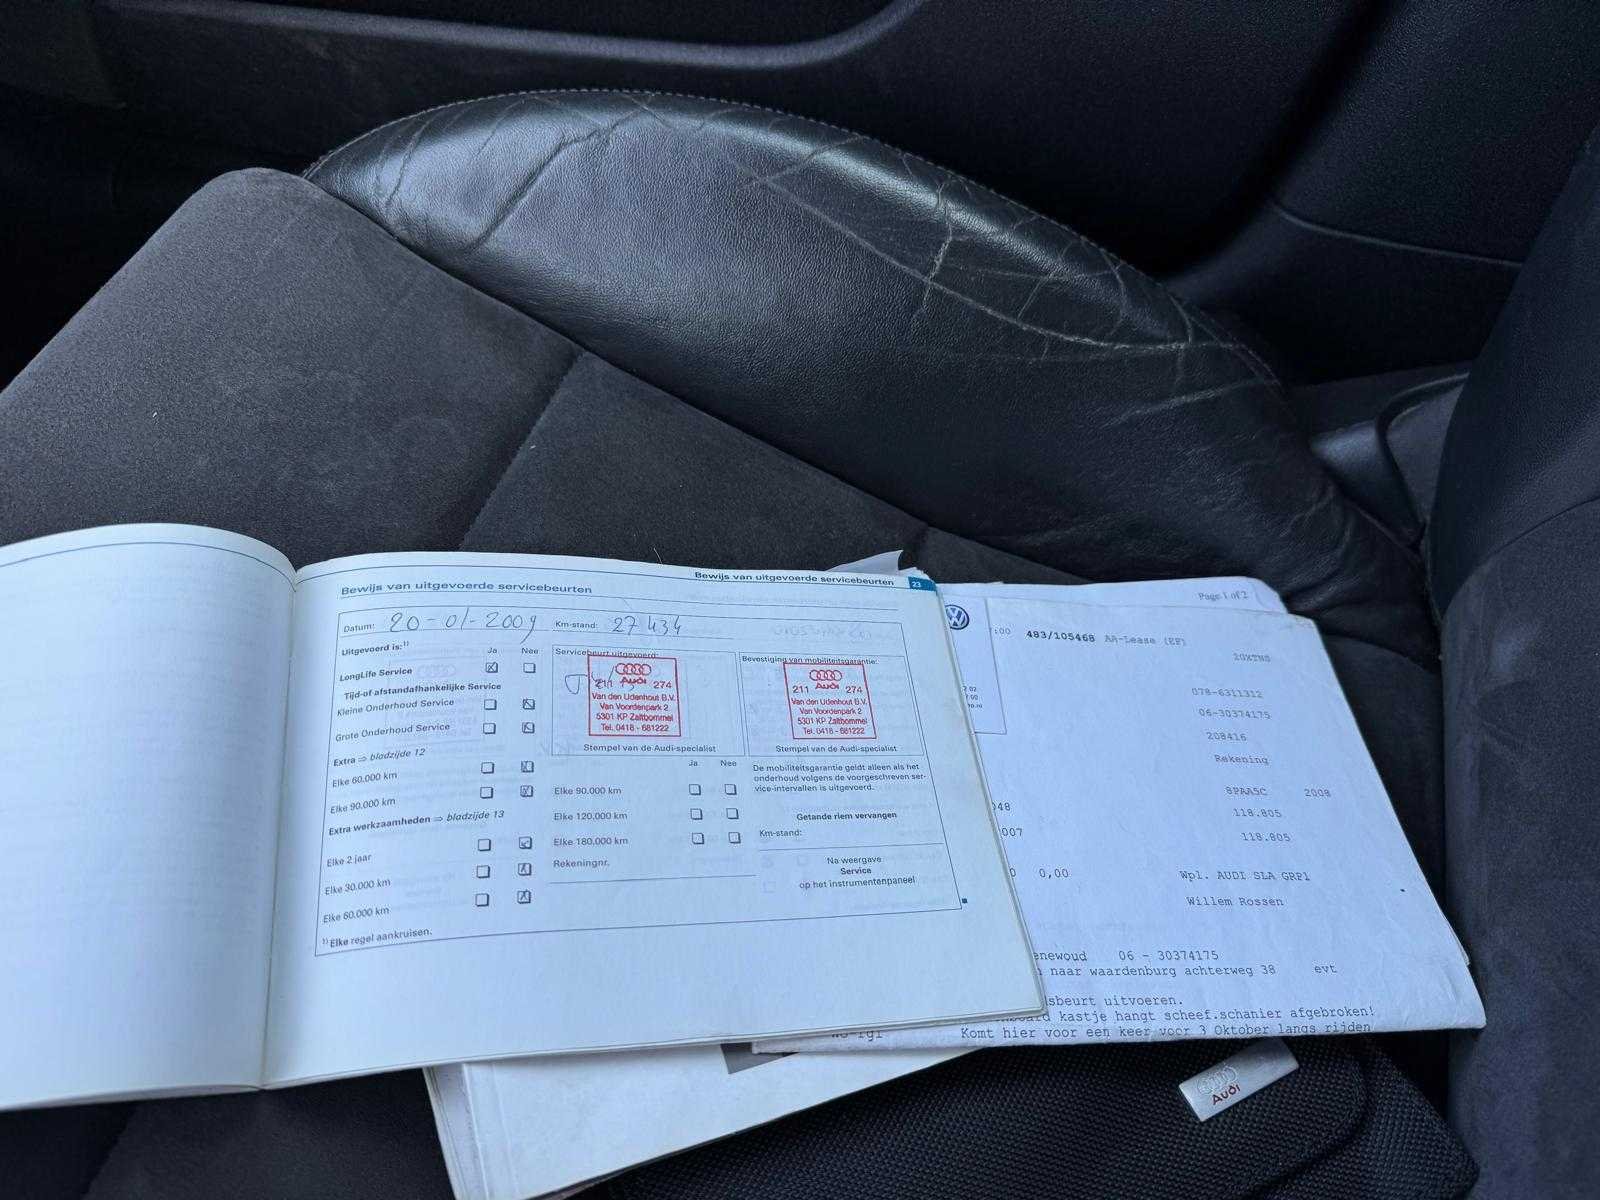 Bewijs van uitgevoerde servicebeurten
Bewijs van uitgevoerde servicebeurten 23
Datum: 20-01-2009 Km-stand: 27 434
Uitgevoerd is:¹⁾
Ja Nee
LongLife Service
Tijd-of afstandafhankelijke Service
Kleine Onderhoud Service
Grote Onderhoud Service
Extra ⇒ bladzijde 12
Elke 60.000 km
Elke 90.000 km
Extra werkzaamheden ⇒ bladzijde 13
Elke 2 jaar
Elke 30.000 km
Elke 60.000 km
¹⁾ Elke regel aankruisen.
Servicebeurt uitgevoerd:
211 Audi 274
Van den Udenhout B.V.
Van Voordenpark 2
5301 KP Zaltbommel
Tel. 0418 - 681222
Stempel van de Audi-specialist
Ja Nee
Elke 90.000 km
Elke 120.000 km
Elke 180.000 km
Rekeningnr.
Bevestiging van mobiliteitsgarantie:
211 Audi 274
Van den Udenhout B.V.
Van Voordenpark 2
5301 KP Zaltbommel
Tel. 0418 - 681222
Stempel van de Audi-specialist
De mobiliteitsgarantie geldt alleen als het
onderhoud volgens de voorgeschreven ser-
vice-intervallen is uitgevoerd.
Getande riem vervangen
Km-stand:
Na weergave
Service
op het instrumentenpaneel
Page 1 of 2
:00 483/105468 AA-Lease (EF)
20XTNS
078-6311312
06-30374175
208416
Rekening
8PAA5C 2008
118.805
007 118.805
0,00 Wpl. AUDI SLA GRP1
Willem Rossen
enewoud 06 - 30374175
naar waardenburg achterweg 38 evt
lsbeurt uitvoeren.
kastje hangt scheef.schanier afgebroken!
Komt hier voor een keer voor 3 Oktober langs rijden
Audi